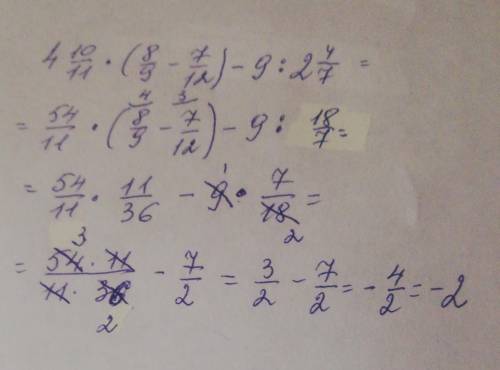 4 10/11 · (8/9 - 7/12) - 9 : 2 4/7 =
= 54/11 · (8/9 - 7/12) - 9 : 18/7 =
= 54/11 · 11/36 - 9 · 7/18 =
= 54 · 11 / 11 · 36 - 7/2 = 3/2 - 7/2 = - 4/2 = -2